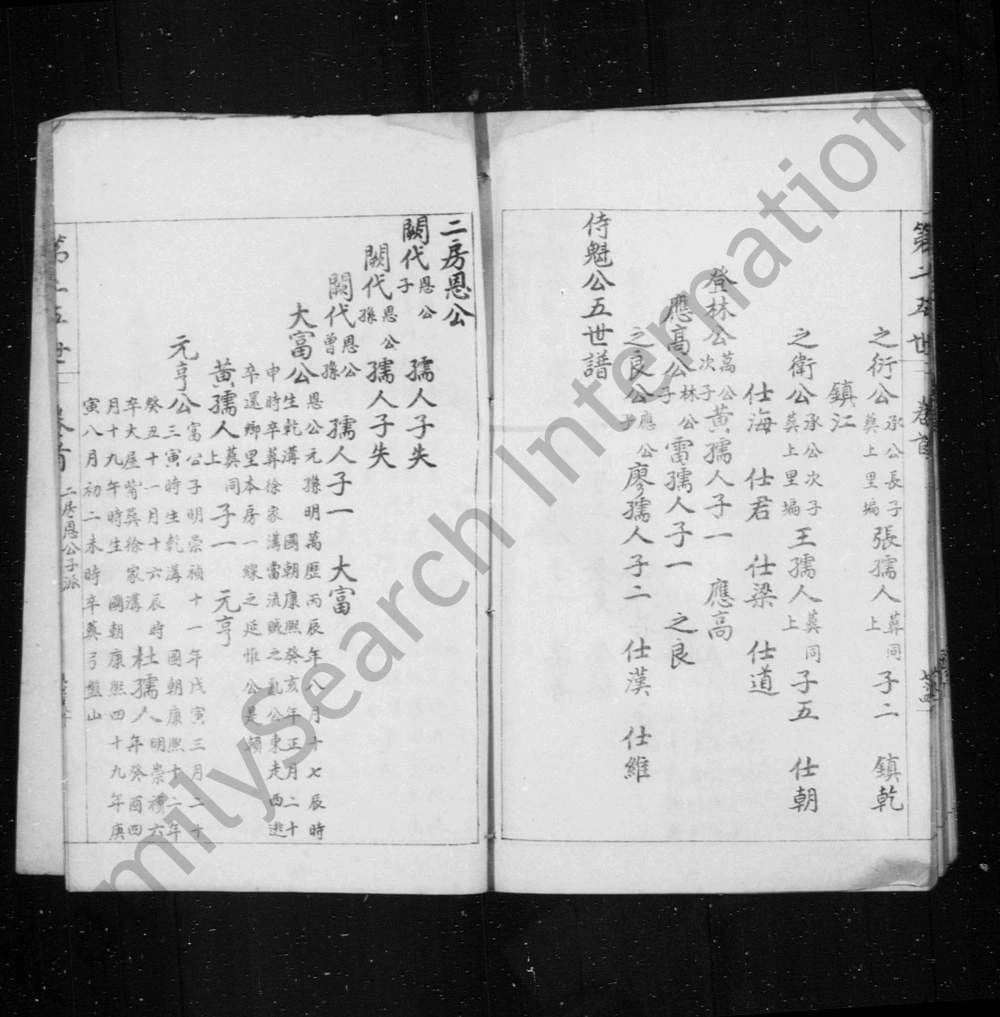 之衍公承公長子葬上里塥張孺人葬同上子二　鎮乾
鎮江
之衛公承公次子葬上里塥王孺人葬同上子五　仕朝
仕海　仕君　仕梁　仕道
登林公萬公次子黃孺人子一　應高
應高公林公子雷孺人子一　之良
之良公應公子廖孺人子二　仕漢　仕維
侍魁公五世譜
二房恩公
闕代恩公子　孺人子失
闕代恩公孫　孺人子失
闕代恩公曾孫　孺人子一　大富
大富公恩公元孫明萬歷丙辰年八月十七辰時
生乾溝國朝康熙癸亥年正月二十
申時卒葬徐家溝當流賊之亂公東走西逃
卒還鄉里本房一線之延惟公是賴
黃孺人葬同上子一　元亨
元亨公富公子明崇禎十一年戊寅三月二十
三寅時生乾溝國朝康熙十二年
癸丑十一月十六辰時
卒大屋嘴葬徐家溝杜孺人明崇禎六
年癸酉四
月十九午時生國朝康熙四十九年庚
寅八月初二未時卒葬弓盤山
二房恩公子派
FamilySearch International